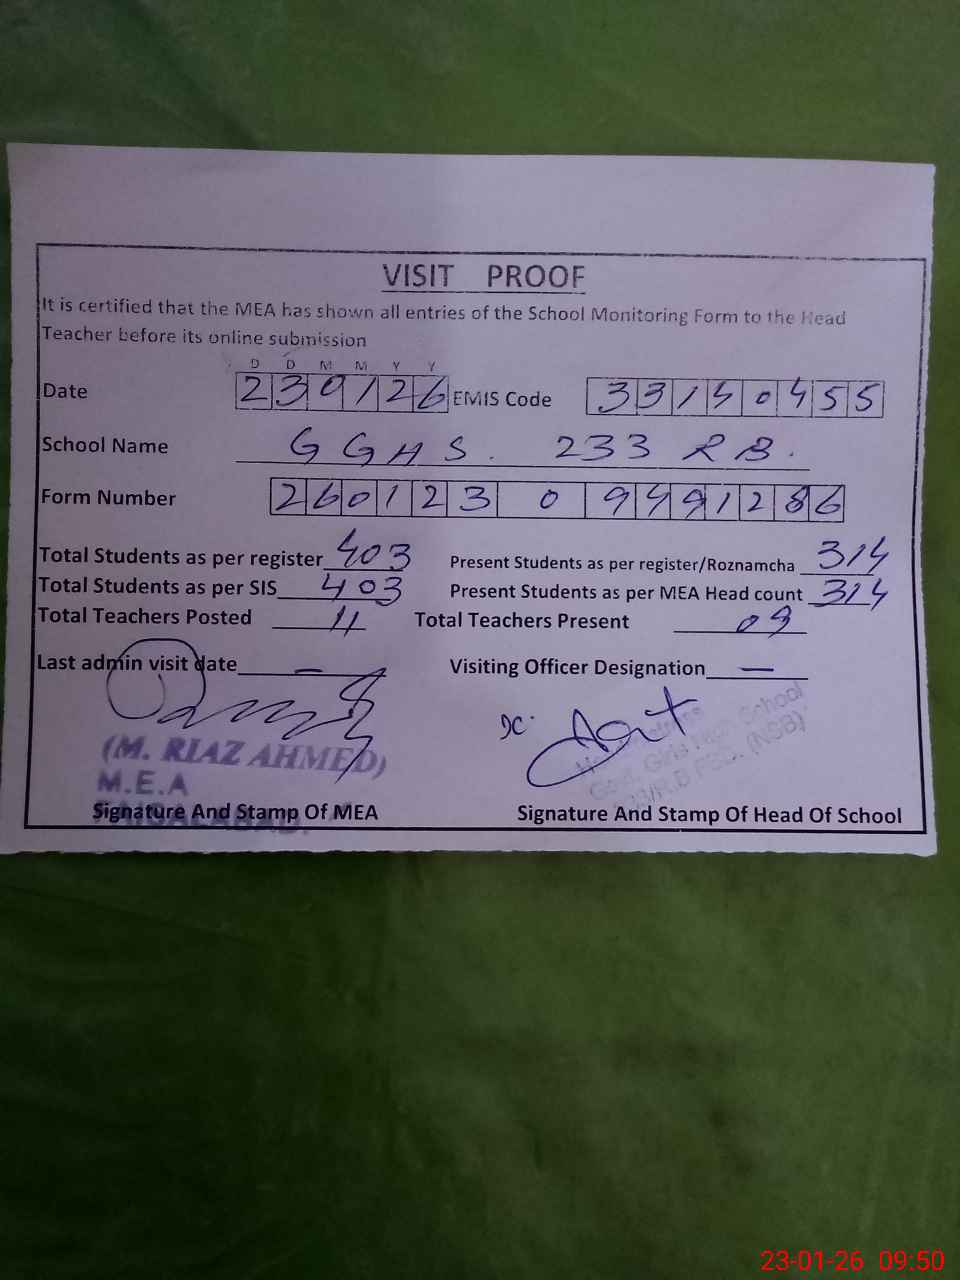 VISIT PROOF
It is certified that the MEA has shown all entries of the School Monitoring Form to the Head
Teacher before its online submission
D D M M Y Y
Date 230126 EMIS Code 33140455
School Name GGHS. 233 RB.
Form Number 260123 0 9491286
Total Students as per register 403 Present Students as per register/Roznamcha 314
Total Students as per SIS 403 Present Students as per MEA Head count 314
Total Teachers Posted 11 Total Teachers Present 09
Last admin visit date — Visiting Officer Designation —
(M. RIAZ AHMED)
M.E.A
FAISALABAD.
Govt. Girls High School
(NSB)
Signature And Stamp Of MEA Signature And Stamp Of Head Of School
23-01-26 09:50